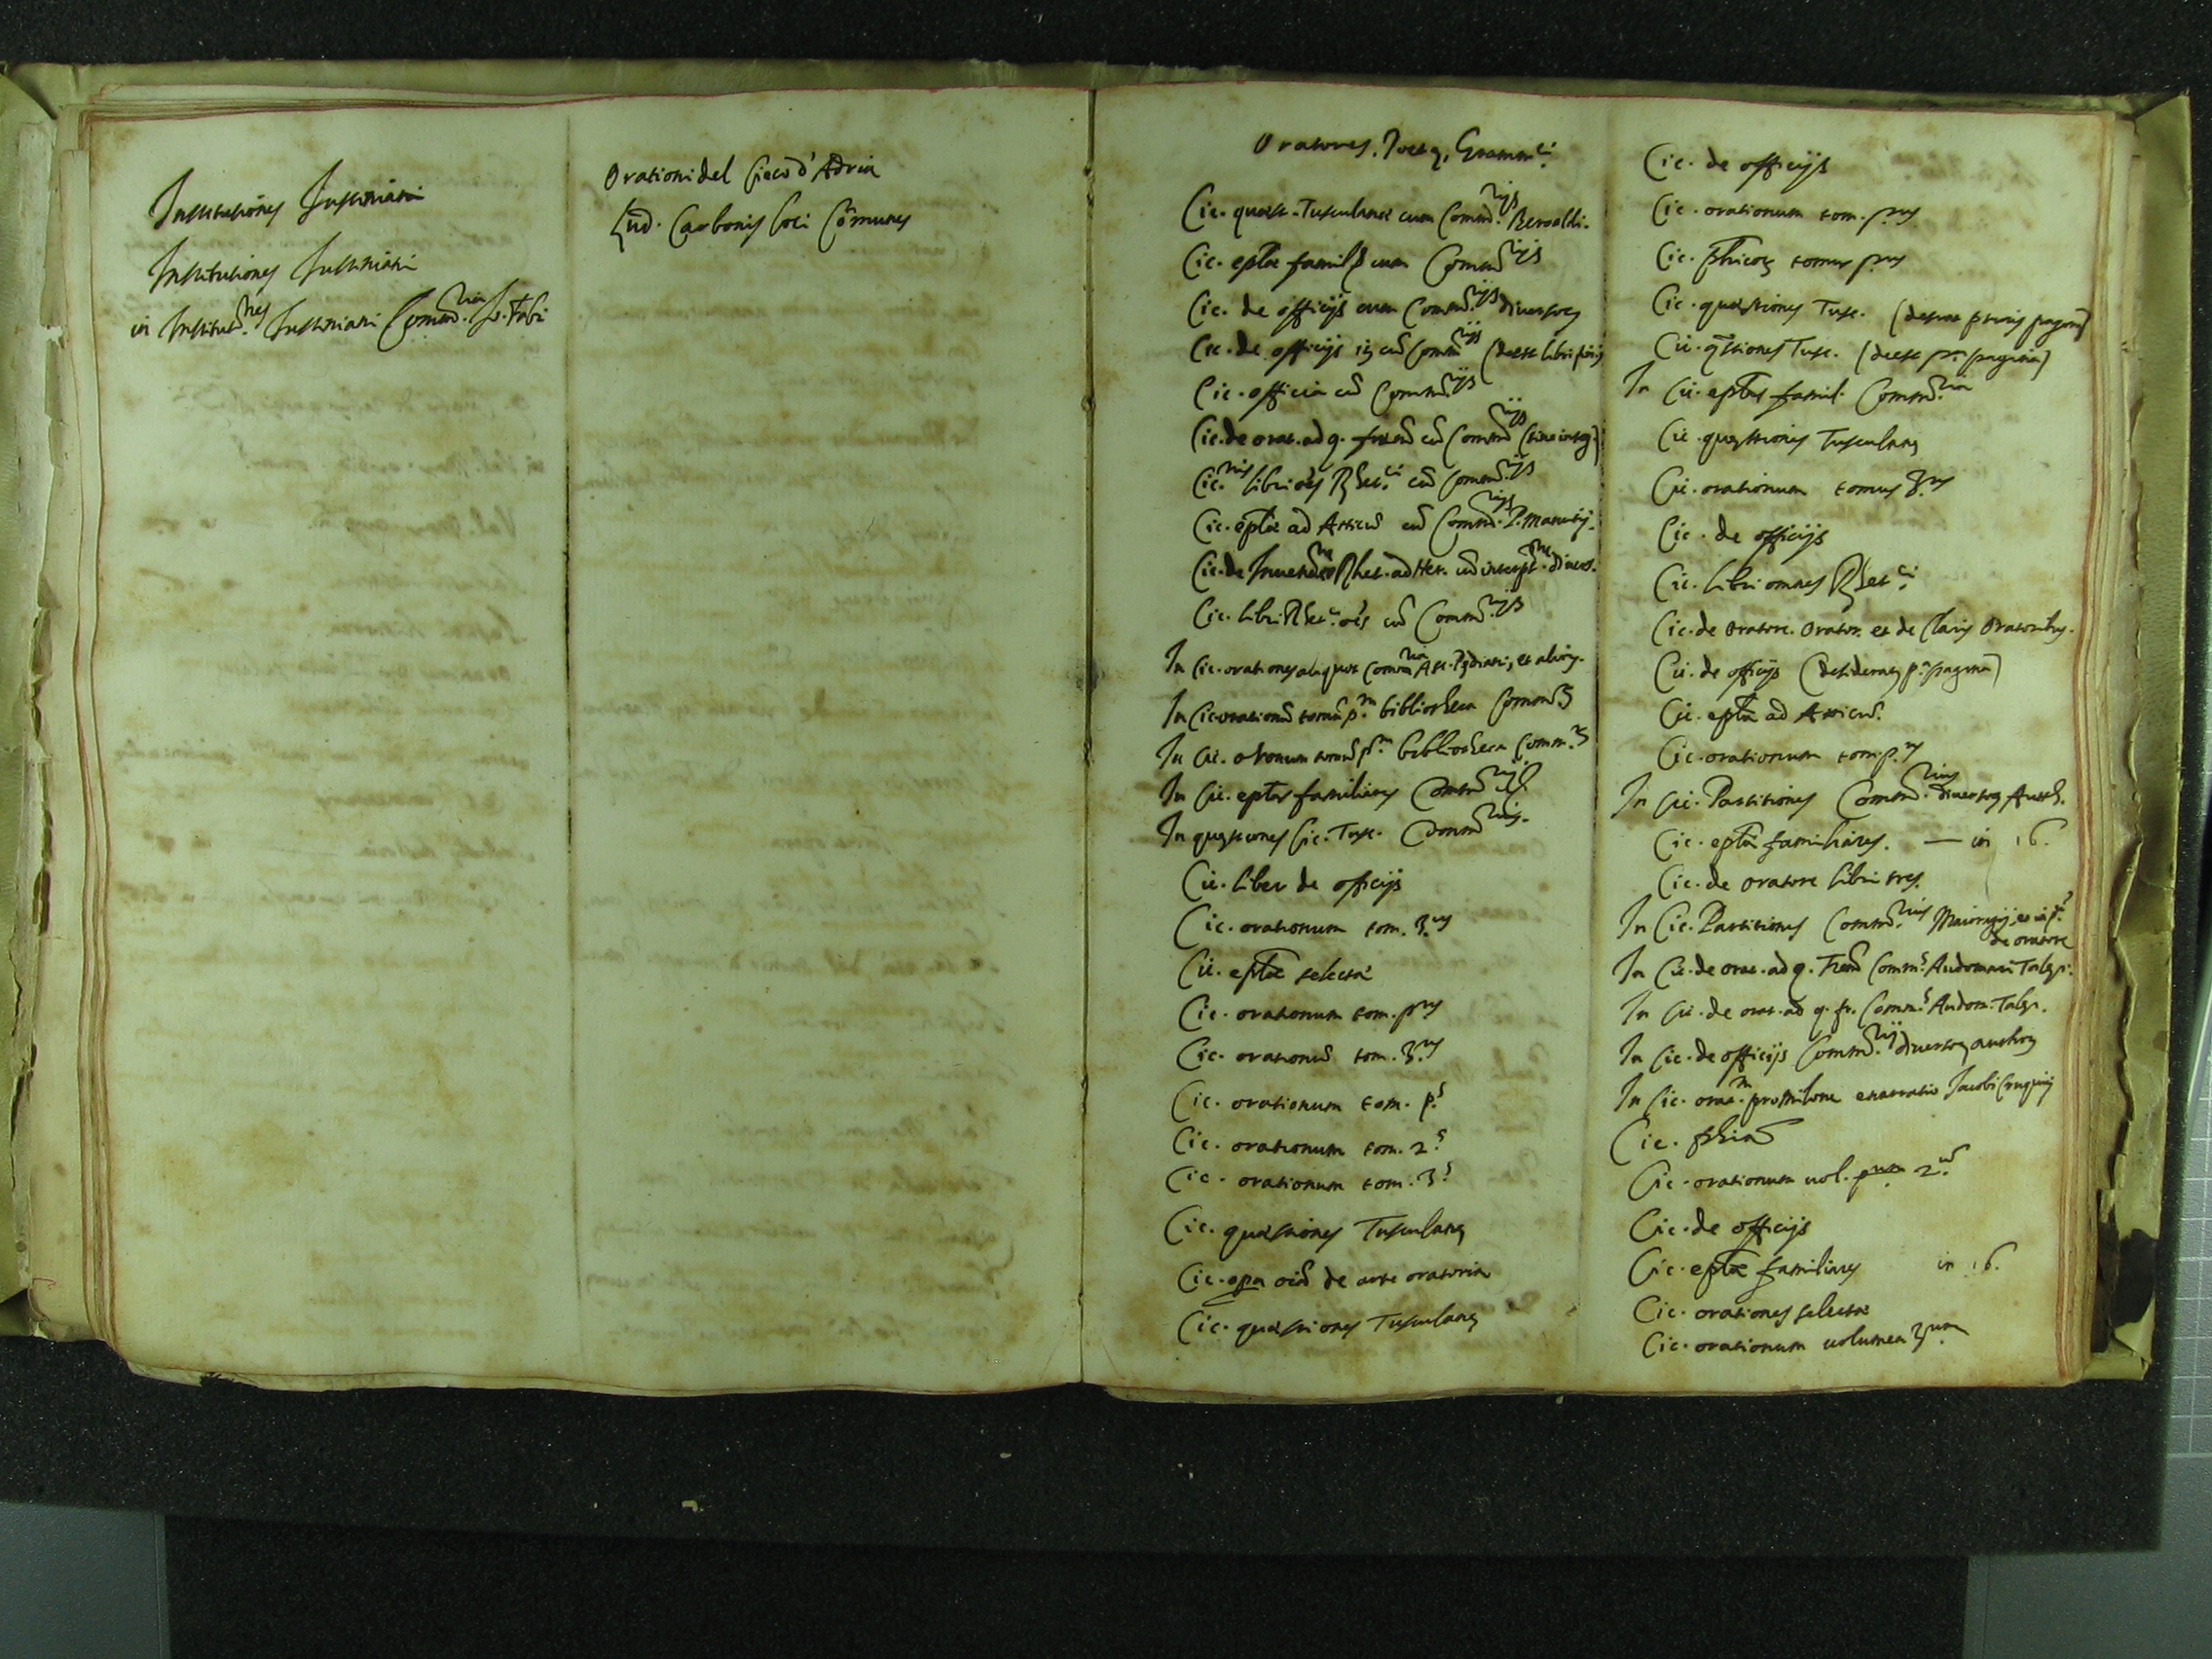 Institutiones Justiniani
Institutiones Justiniani
in Institut.nes Justiniani Comm.ria Jo. Fabi
Orationi del Cieco d'Adria
Lud. Carbonis loci Comunes
Oratores, Poetę, Gramm.ci
Cic. quæst. Tusculanæ cum Comm.rijs Beroaldi.
Cic. eplæ famil cum Comm.rijs
Cic. de officijs cum Comm.rijs diversor
Cic. de officijs cu Comm.rijs (deest libri
Cic. officia cū Comm.rijs
Cic. de orat. ad q. cū Comm.rijs
Cic.nis libri oēs Rhet.ci cū Comm.rijs
Cic. eplæ ad Atticū cū Comm.rijs P. Manutij.
Cic. de Inventione Rhet. ad Her. cū interpt.ne divers.
Cic. libri Rhet.ci oēs cū Comm.rijs
In Cic. orationes aliquot Comm.ria Asc. Pędiani, et alior.
In Cic. orationū tomū p.m bibliotheca Comm.s
In Cic. tomū p.m bibliotheca Comm.s
In Cic. eplas familiares Comm.rijs
In quęstiones Cic. Tusc. Comm.rius.
Cic. liber de officijs
Cic. orationum tom. 3.us
Cic. eplæ selectæ
Cic. orationum tom. p.us
Cic. orationū tom. 3.us
Cic. orationum tom. p.s
Cic. orationum tom. 2.s
Cic. orationum tom. 3.s
Cic. quæstiones Tusculanę
Cic. opa oia de arte oratoria
Cic. quæstiones Tusculanę
Cic. de officijs
Cic. orationum tom. p.us
Cic. phicor tomus p.us
Cic. quæstiones Tusc.
Cic. q̄stiones Tusc. (deest p.a pagina)
In Cic. eplas famil. Comm.ria
Cic. quęstiones Tusculanę
Cic. orationum tomus 3.us
Cic. de officijs
Cic. libri omnes Rhet.ci
Cic. de Oratore. Orator. et de Claris Oratoribus.
Cic. de officijs (desideratur p.a pagina)
Cic. eplæ ad Atticū.
Cic. orationum tom. p.us
In Cic. Partitiones Comm.rius diversor Auth.
Cic. eplæ familiares. — in 16.
Cic. de oratore libri tres.
In Cic. Partitiones Comm.rius Maioragij, et in p.m
de oratore
In Cic. de orat. ad q. Frem Comm.s Audomari Talęi.
In Cic. de orat. ad q. fr. Comm.s Audom. Talęi.
In Cic. de officijs Comm.rij diversor author
In Cic. orat.m pro Milone enarratio Jacobi Cruquij
Cic. phia
Cic. orationum vol. pum 2.m
Cic. de officijs
Cic. eplæ familiares in 16.
Cic. orationes selectæ
Cic. orationum volumen 3.um